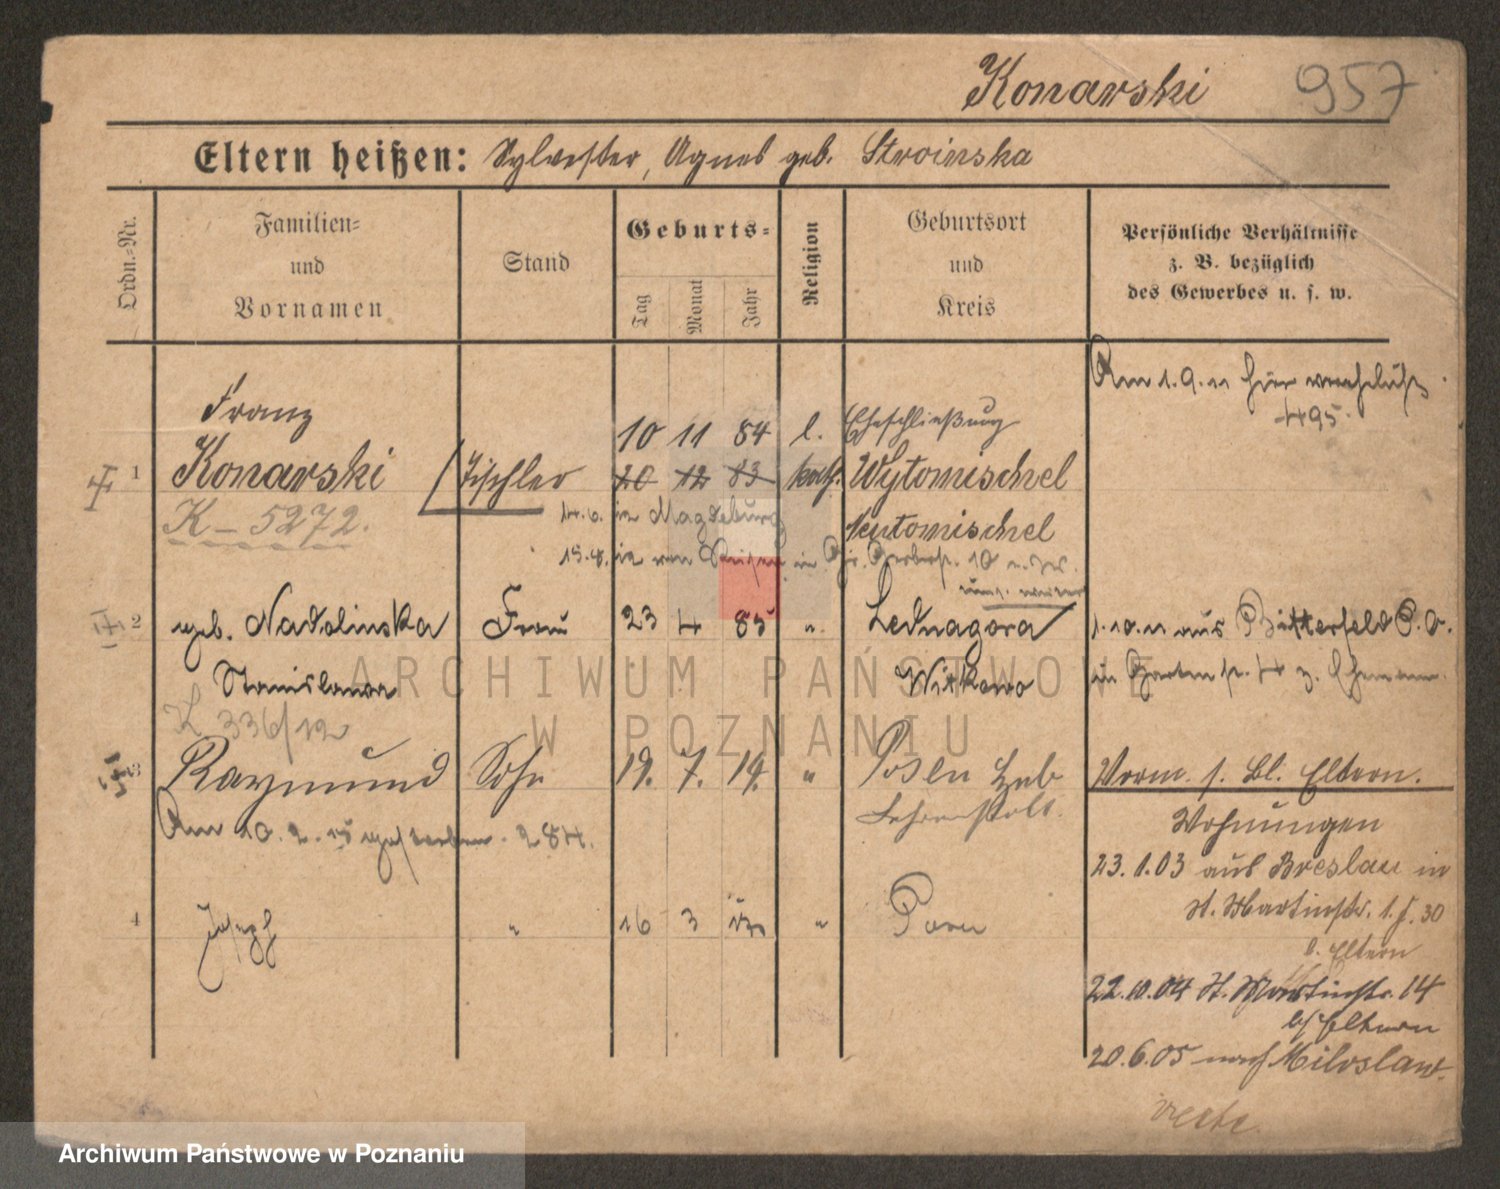 Konarski 957
Eltern heißen: Sylvester, Agnes geb. Stroinska
Ordn.-Nr.
Familien-
und
Vornamen
Stand
Geburts-
Tag
Monat
Jahr
Religion
Geburtsort
und
Kreis
Persönliche Verhältnisse
z. B. bezüglich
des Gewerbes u. s. w.
Am 1.9.11 hier verehelicht
495.
Franz
10 11 84 l. Eheschließung
1 Konarski Tischler 20 12 83 kath. Wytomischel
K – 5272.
14.6. in Magdeburg
Neutomischel
15.8.
2 geb. Nadolinska Frau 23 4 85 „ Lednagora
1.10.11 aus Bitterfeld
Stanislawa
Witkowo
K 336/12
3 Raymund Sohn 19. 7. 14. „ Posen Heb
Lehranstalt.
Vorm. s. Bl. Eltern.
Am 10.2.15 gestorben. 284.
Wohnungen
23.1.03 aus Breslau in
St. Martinstr. 30
b. Eltern
4 Joseph „ 16 3 „ Posen
22.10.04 St. Martinstr. 14
b/ Eltern
20.6.05 nach Miloslaw.
ARCHIWUM PAŃSTWOWE
W POZNANIU
Archiwum Państwowe w Poznaniu